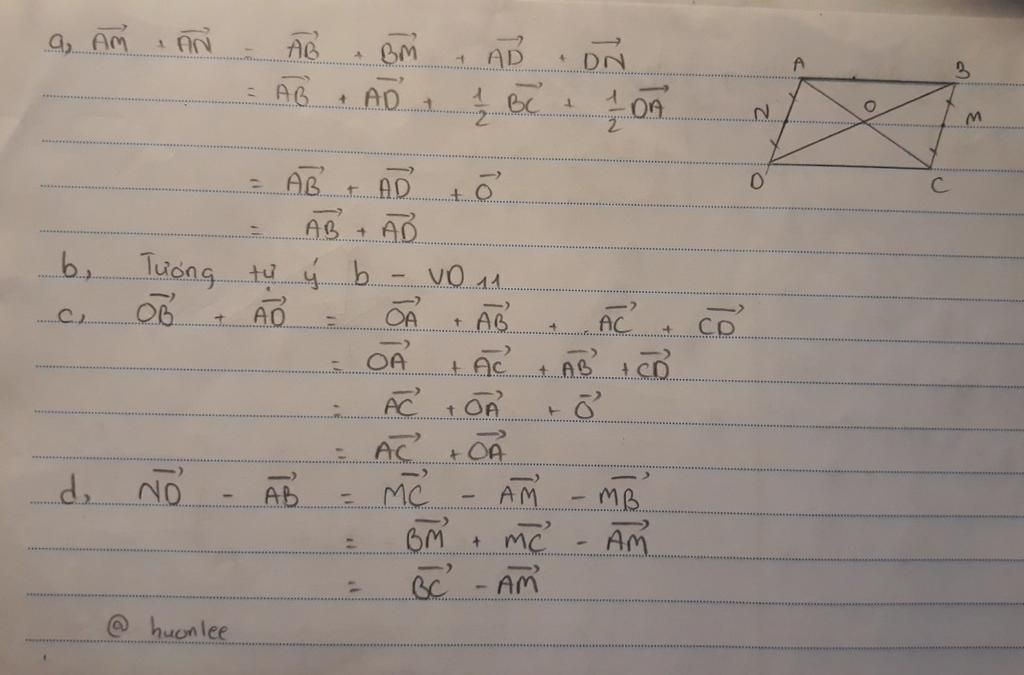 a, AM→ + AN→ = AB→ + BM→ + AD→ + DN→
= AB→ + AD→ + 1/2 BC→ + 1/2 DA→
= AB→ + AD→ + O→
= AB→ + AD→
A B
N O M
D C
b, Tương tự ý b - VD 11
c, OB→ + AD→ = OA→ + AB→ + AC→ + CD→
= OA→ + AC→ + AB→ + CD→
= AC→ + OA→ + O→
= AC→ + OA→
d, ND→ - AB→ = MC→ - AM→ - MB→
= BM→ + MC→ - AM→
= BC→ - AM→
@ huonlee